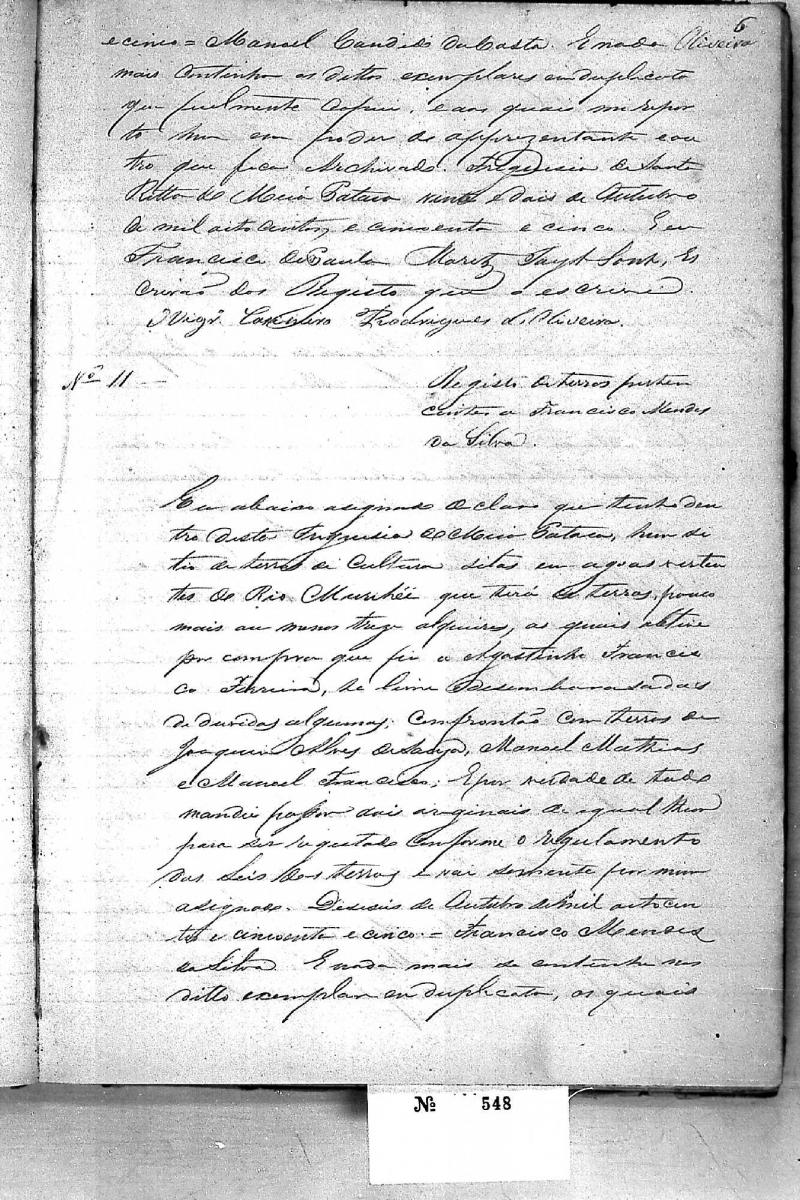 6
Oliveira
e cinco = Manoel Candido da Costa. E nada
mais continha os dittos exemplares em duplicata
que fielmente copiei, e aos quais me repor
to hum em poder do apprezentante e ou
tro que fica Archivado. Freguesia de Santa
Ritta do Meia Pataca vinte e dois de Outubro
de mil oito centos, e cincoenta e cinco. Eu
Francisco de Paula Es
crivão dos Registo que o escrivi.
O Vigrº Rodrigues d'Oliveira.
Nº 11 —
Registo de terras perten
centes a Francisco Mendes
da Silva.
Eu abaixo asignado declaro que tenho den
tro desta Freguesia do Meia Pataca, hum si
tio de terras de Cultura sitas em agoas verten
tes do Rio Murihé que terá de terras, pouco
mais au menos treze alqueires, as quais obtive
por compra que fiz a Agostinho Francis
co Ferreira, he livre Desembarasadas
de duvidas algumas; Confrontão com terras de
Joaquim Alves de Manoel Mathias
e Manoel Francisco; E por verdade de tudo
mandei passar dois originais de igual theor
para ser registado Conforme o regulamento
das Leis das terras e vai somente por mim
asignado. Deseseis de Outubro de mil oitocen
tos e cincoenta e cinco. = Francisco Mendes
da Silva. E nada mais se continha nos
ditto exemplar em duplicata, os quais
Nº 548